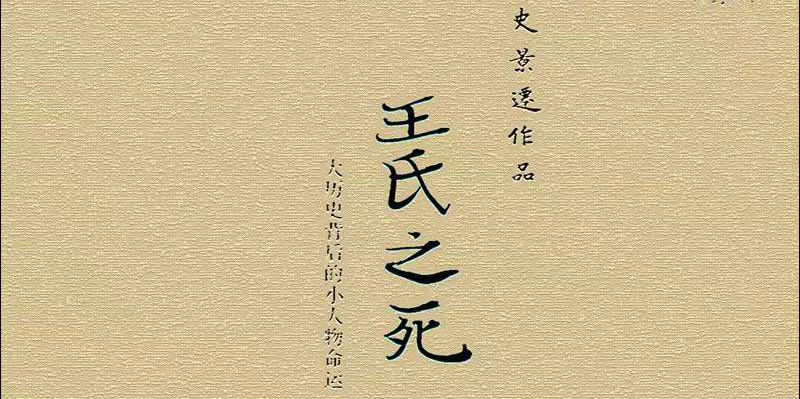 史景遷作品
王氏之死
大历史背后的小人物命运